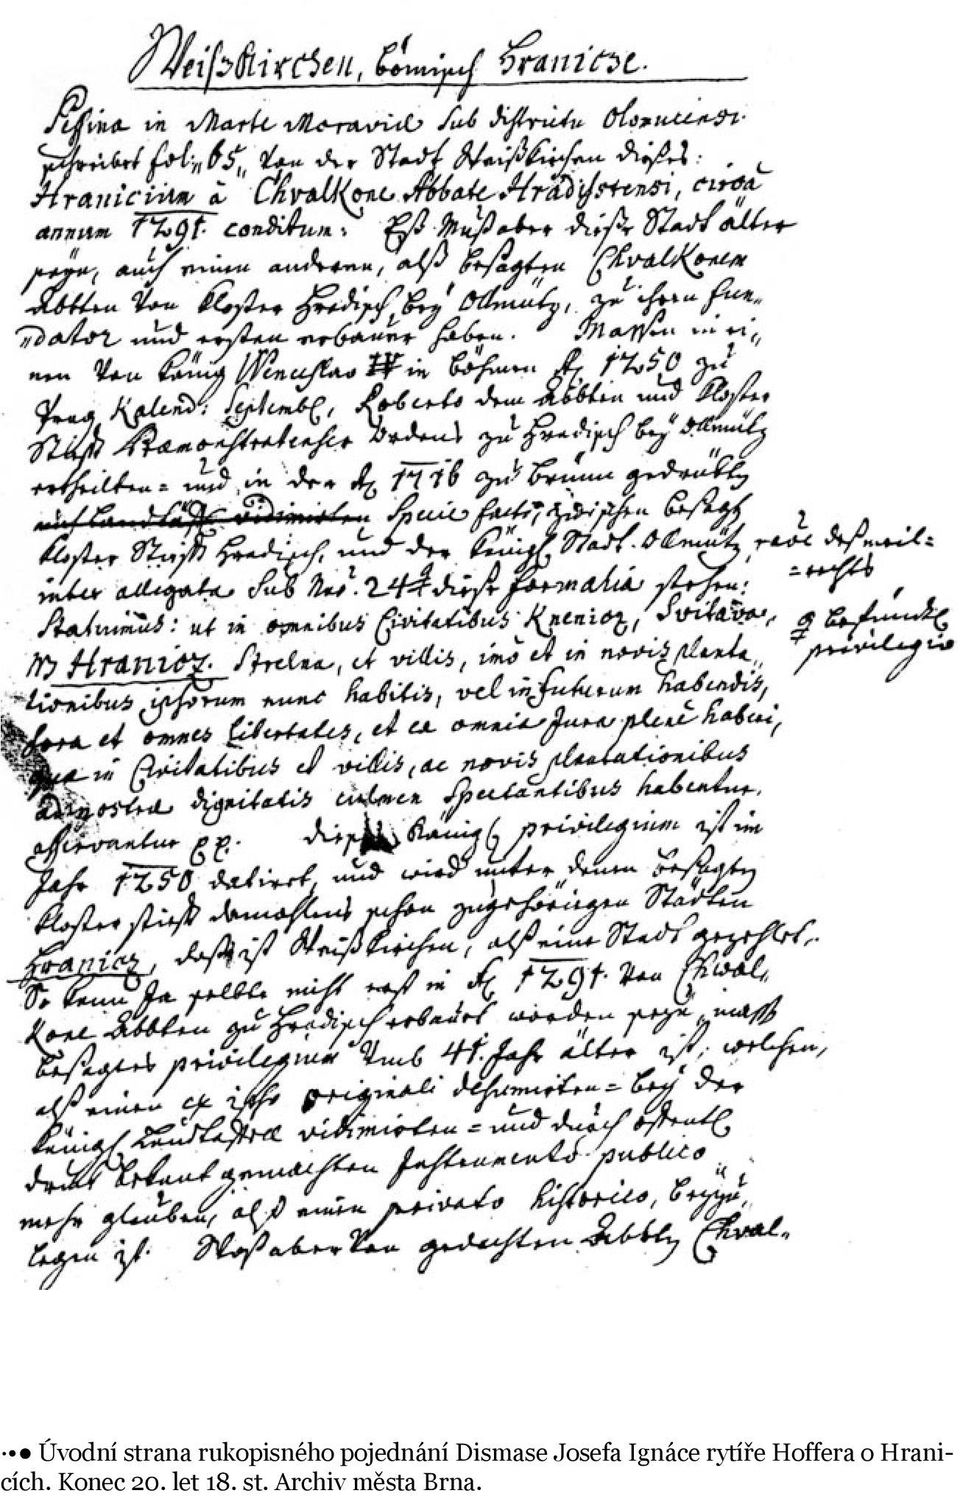 Weißkirchen, bömisch Hranicze.
Pessina in Marte Moravico sub districtu Olomucensi
schreibet fol: 65, von der Stadt Weißkirchen dieses:
Hranicium à Chvalkone Abbate Hradistensi, circa
annum 1291. conditum: Eß muß aber diese Stadt älter
seyn, auch einen anderen, alß besagten Chvalkonem
Abbten von Kloster Hradisch bey Ollmütz, zu ihren fun„
„dator und ersten erbauer haben. Massen in ei„
nen von König Wenceslao in Böhmen A 1250 zu
Prag Kalend: Septemb, Roberto dem Abbten und Kloster
Stifft Praemonstratenser Ordens zu Hradisch bey Ollmütz
ertheilten = und in der A 1716 zu Brünn gedruckten
auf Landtaffl vidimirten Specie facti, zwischen besagt
Kloster Stifft Hradisch, und der Königl Stadt Ollmütz,
inter allegata sub Nro 24 diese formalia stehen:
Statuimus: ut in omnibus Civitatibus Knenicz, Svitava,
Hranicz. Strelna, et villis, imo et in novis planta„
tionibus ipsorum nunc habitis, vel in futurum habendis,
fora et omnes libertates, et ea omnia Jura plene haberi,
quae in Civitatibus et villis, ac novis plantationibus
ad nostrae dignitatis culmen spectantibus habentur,
observantur pp. Dieses Königl privilegium ist im
Jahr 1250 datirt, und wird unter denen besagten
Kloster stifft damahlens schon zugehörigen Städten
Hranicz, daß ist Weißkirchen, alß eine Stadt gezehlet,
So kann Ja selbte nicht erst in A 1291. von Chwal„
kone Abbten zu Hradisch erbauet worden seyn, maß
besagtes privilegium umb 41. Jahr älter ist, welchen,
alß einen ex ipso originali desumirten = bey der
Königl Landtaffel vidimirten = und durch offentl
druck bekant gemachten Instrumento publico
mehr glauben, alß einen privato historico, beyzu„
legen ist. Waß aber von gedachten Abbten Chval„
deß meil=
=rechts
befindtl
privilegio
Úvodní strana rukopisného pojednání Dismase Josefa Ignáce rytíře Hoffera o Hrani-
cích. Konec 20. let 18. st. Archiv města Brna.